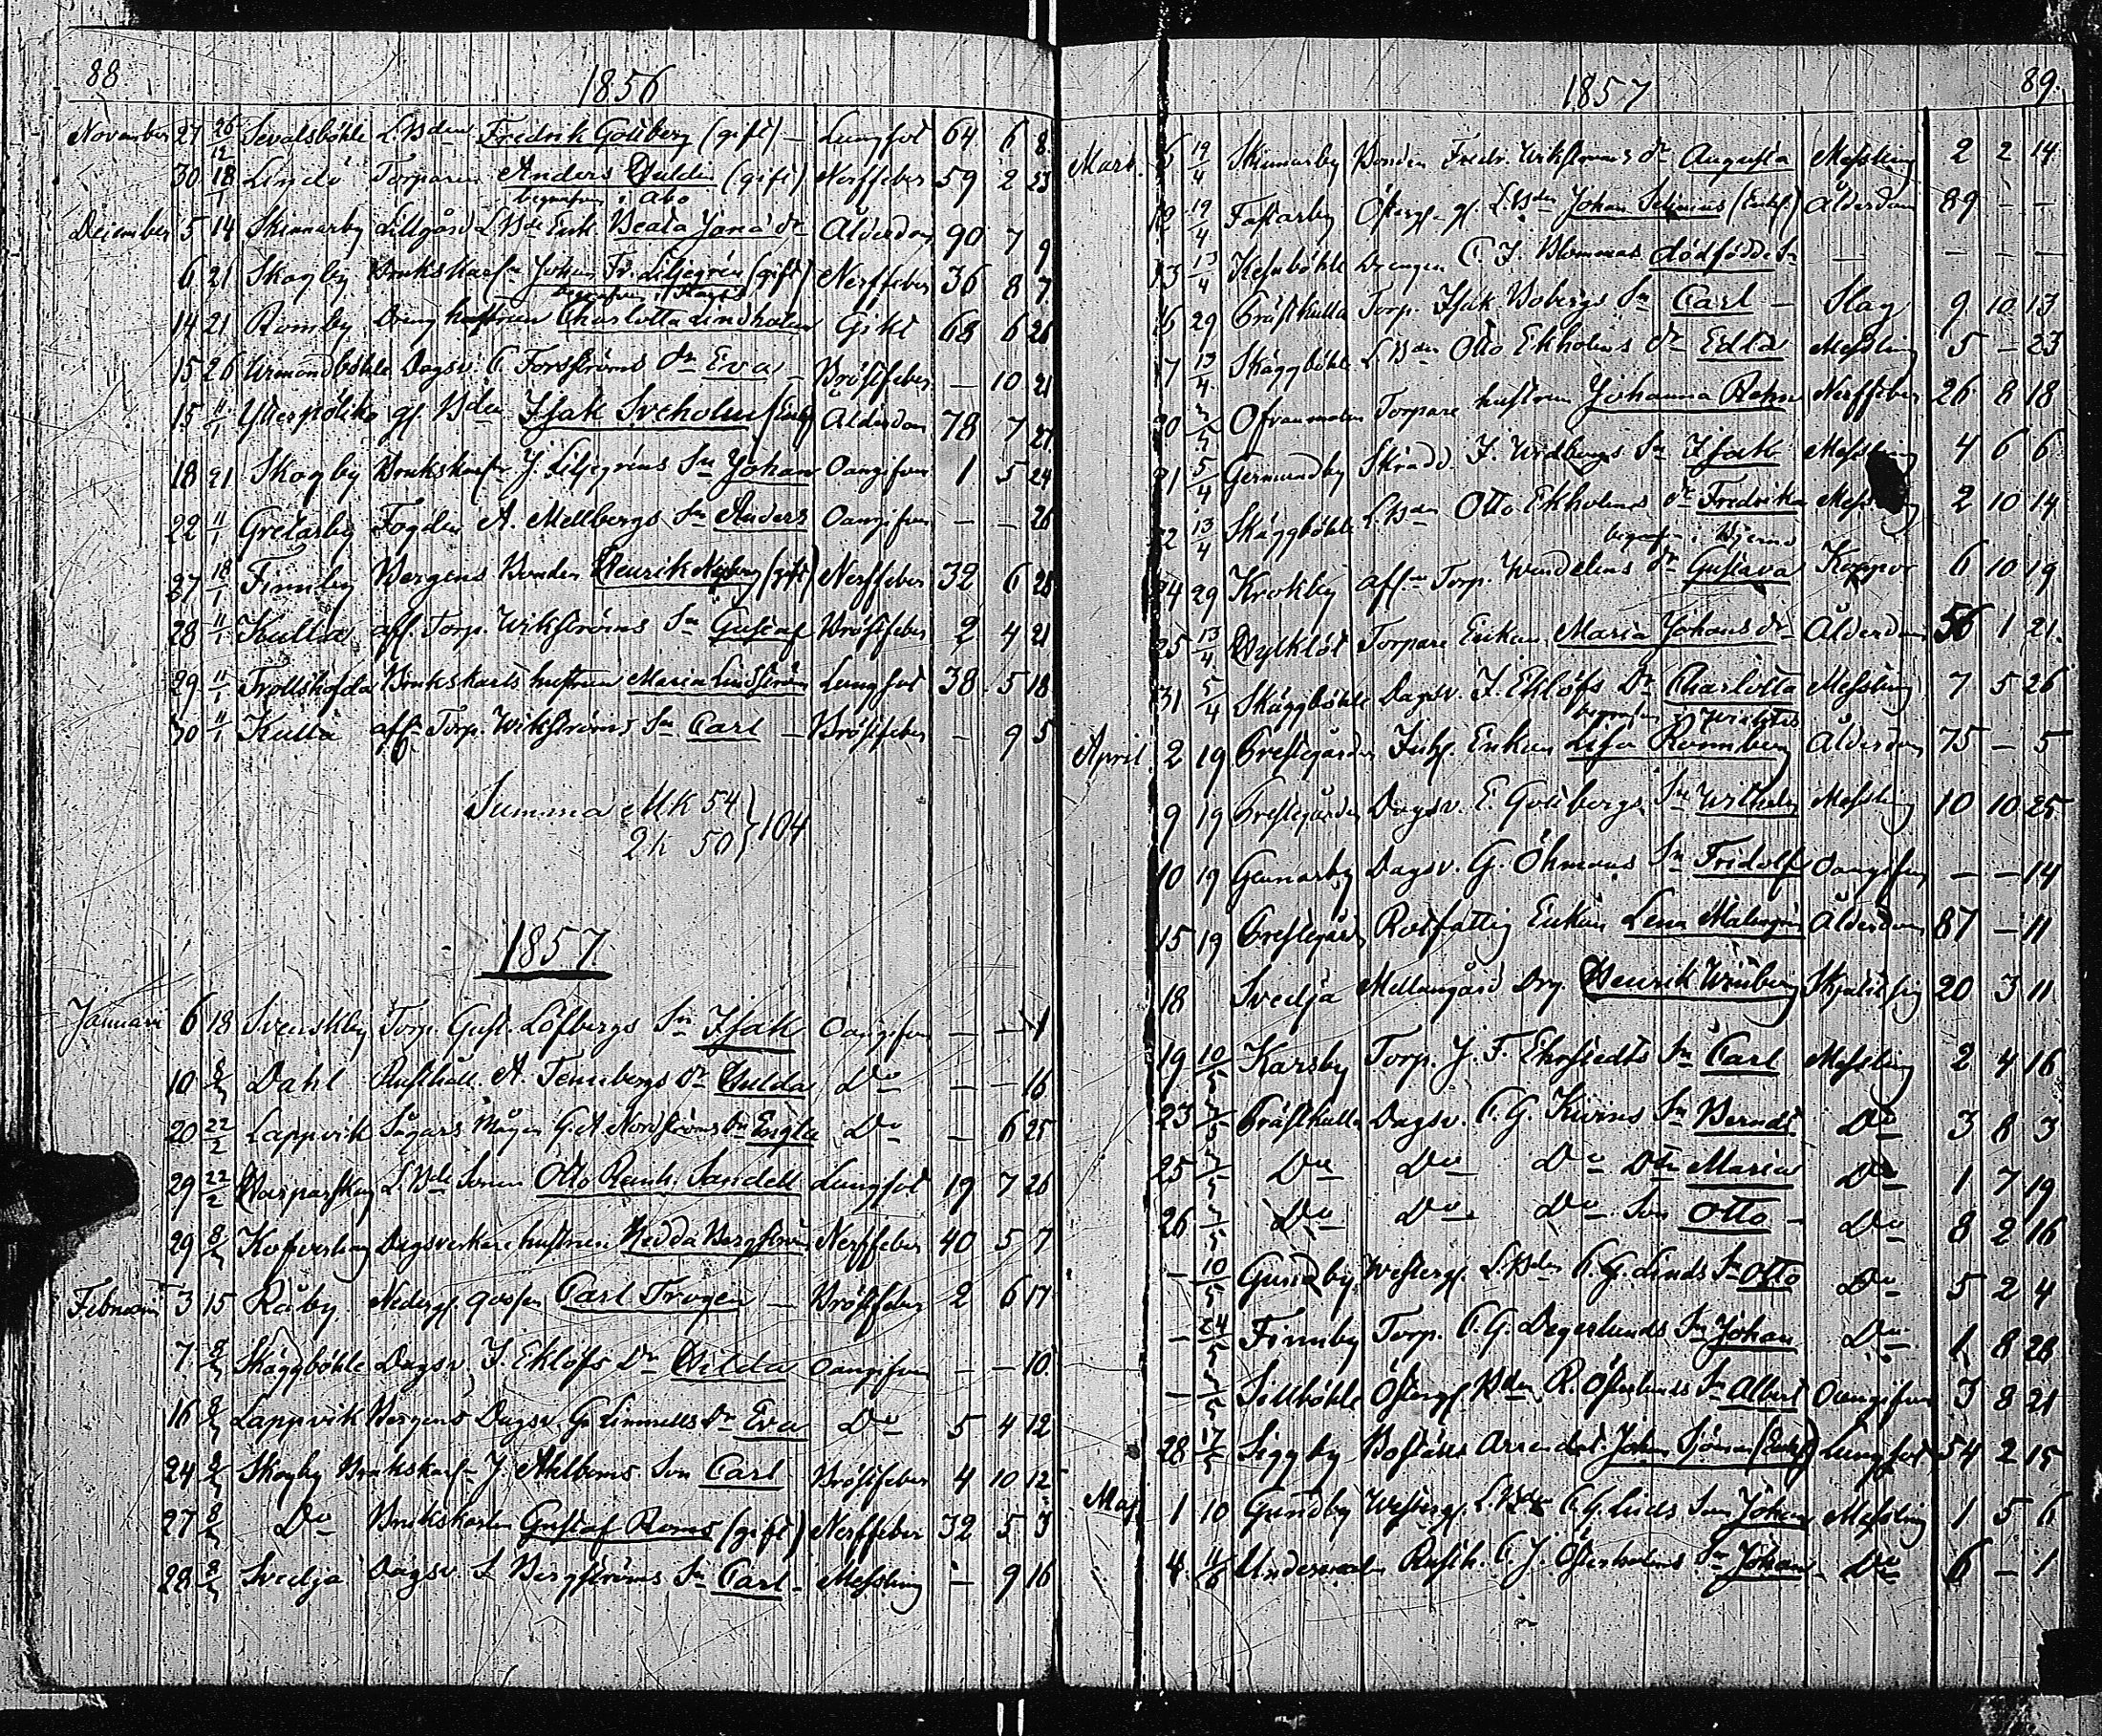 88
1856
November 27 26/12 Sevalsböhle L.Bden Fredrik Gottberg (gift) – Lungsot 64 6 8
30 18/1 Lindö Torparen Anders Huldin (gift) Nerffeber 59 2 23
begrafven i Åbo
December 5 14 Skinnarby Lillgård L.Bde Enk. Beata Jans dr Ålderdom 90 7 9
6 21 Skogby Brukskarlen Johan Fr. Liljegrén (gift) Nerffeber 36 8 7
begrafven i
14 21 Romby Dreng hustrun Charlotta Lindholm Gikt 68 6 26
15 26 Dagsv. C. Forsströms dr Eva – Bröstfeber – 10 21
15 11/1 gf. Bden Isak Sveholm (Enkl.) Ålderdom 78 7 27
18 21 Skogby Brukskarlen J. Liljegréns Sn Johan Oangifven 1 5 24
22 11/1 Gretarby Fogden A. Mellbergs Sn Anders Oangifven – – 26
27 18/1 Finnby Bergens Bonden Henrik Nyberg (gift) Nerffeber 32 6 28
28 11/1 Kulla aff. Torp. Wikströms Sn Gustaf Bröstfeber 2 4 21
29 11/1 Trollshofda Brukskarls hustrun Maria Lindström Lungsot 38 5 18
30 11/1 Kulla aff. Torp. Wikströms Sn Carl – Bröstfeber – 9 5
Summa MK 54
QK 50 } 104
1857
Januari 6 18 Svenskby Torp. Gust. Löfbergs Sn Isak Oangifven – – 1
10 8/2 Dahl Rusthåll. A. Tennbergs dr Hulda Do – – 16
20 22/2 Lappvik Sågars Mågen G. A. Nordströms Dr Engla Do – 6 25
29 22/2 L.Bde Sonen Otto Reinh. Sandell Lungsot 19 7 26
29 8/2 Dagsverkare hustrun Hedda Bergström Nerffeber 40 5 7
Februari 3 15 Råby Nederg. gossen Carl Trogen – Bröstfeber 2 6 17
7 8/2 Skäggböhle Dagsv. J. Eklöfs Dr Hilda Oangifven – – 10
16 8/2 Lappvik Bergens Dagsv. G. Linnells Dr Eva Do 5 4 12
24 8/2 Skogby Brukskarlen J. Ahlboms Son Carl Bröstfeber 4 10 12
27 8/2 Do Brukskarlen Gustaf Roms (gift) Nerffeber 32 5 3
28 8/2 Svedja Dagsv. S. Bergströms Sn Carl – Messling – 9 16
1857
89.
Mars 6 19/4 Skinnarby Bonden Fredr. Wikströms dr Augusta Messling 2 2 14
12 19/4 Fastarby Österg. gf. L.Bden Johan Selenius (Enkl.) Ålderdom 89 – –
13 13/4 Kesuböhle Drengen C. J. Blommas dödfödde Sn – – – –
15 29 Prästkulla Torp. Isak Bobergs Sn Carl – Slag 9 10 13
17 13/4 Skäggböhle L.Bden Otto Ekholms dr Edla Messling 5 – 23
20 Ofvanmalm Torpare hustrun Johanna Rehn Nerffeber 26 8 18
21 5/4 Germundby Skradd. J. Widbergs Sn Isak Messling 4 6 6
22 13/4 Skäggböhle L.Bden Otto Ekholms dr Fredrika Messling 2 10 14
begrafven i Bjerno
24 29 Krokby aff. Torp. Wendelins dr Gustava Koppor 6 10 19
25 13/4 Torpare Enkan Maria Johans dr Ålderdom 56 1 21
31 5/4 Skäggböhle Dagsv. J. Eklöfs Dr Charlotta Messling 7 5 26
begrafven i
April 2 19 Prestegården Inh. Enkan Lisa Rönnberg Ålderdom 75 – 5
9 19 Prestegården Dagsv. E. Gottbergs Sn Wilhelm Messling 10 10 25
10 19 Gennarby Dagsv. G. Öhmans Sn Fridolf Oangifven – – 14
15 19 Prestegård Rotfattig Enkan Lena Malmgrén Ålderdom 87 – 11
18 Svedja Mellangård Drg. Henrik Winberg 20 3 11
19 10/5 Karsby Torp. J. F. Ekestedts Sn Carl Messling 2 4 16
23 3/5 Prästkulla Dagsv. C. G. Sn Berndt Do 3 8 3
25 3/5 Do Do Do Dtr Maria Do 1 7 19
26 3/5 Do Do Do Son Otto – Do 8 2 16
– 10/5 Gundby Westerg. L.Bden C. G. Linds Sn Otto Do 5 2 4
– 24/5 Finnby Torp. C. G. Degerlunds Sn Johan Do 1 8 28
– 3/5 Sillböhle Österg. Bden R. Österlunds Sn Albert Oangifven 3 8 21
28 17/5 Siggby Boställs Arrendat. Johan Sjöman (Enkl.) Lungsot 54 2 15
Maj 1 10 Gundby Westerg. L.Bden C. G. Linds Son Johan Messling 1 5 6
4 Rusth. C. J. Österholms Sn Johan Do 6 – 1